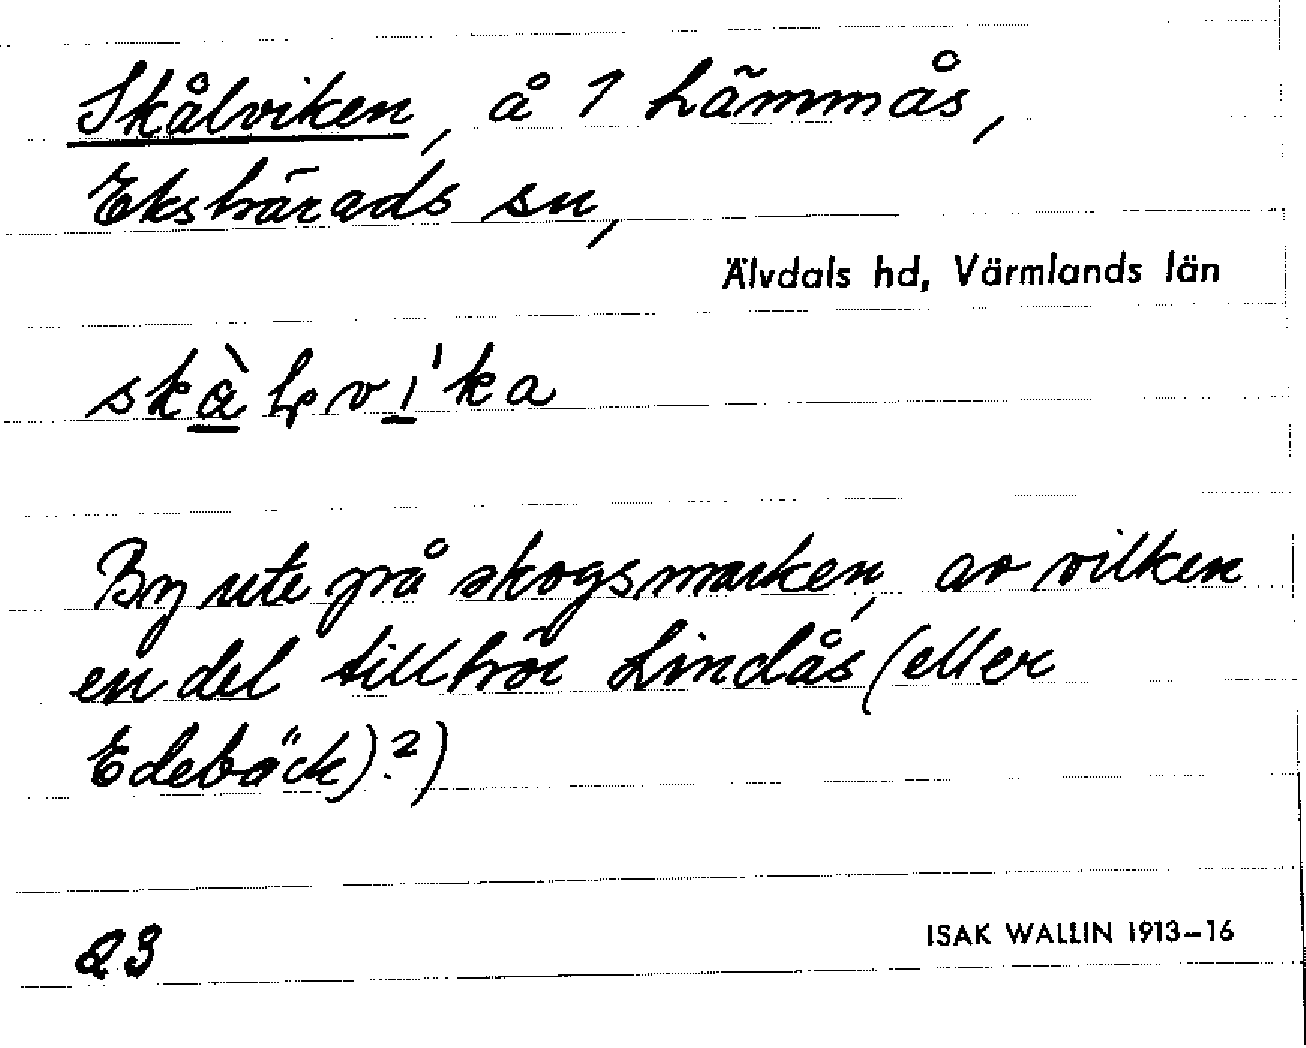 Skålviken, å 1 Lämmås,
Ekshärads sn,
Älvdals hd, Värmlands län
By ute på skogsmarken, av vilken
en del tillhör Lindås (eller
Edebäck)?)
23
ISAK WALLIN 1913–16